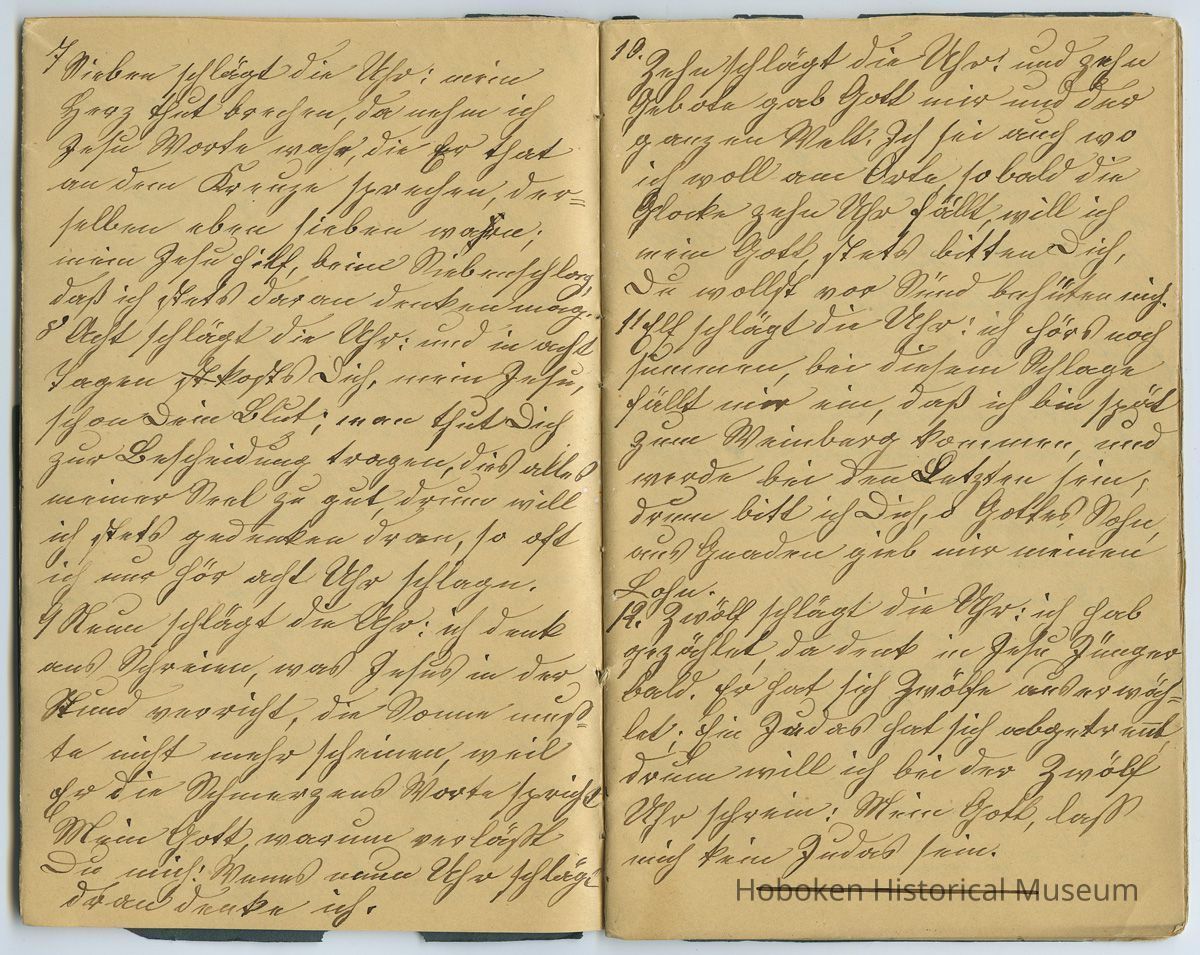 7 Sieben schlägt die Uhr: mein
Herz thut brechen, da nehm ich
Jesu Worte wahr, die Er that
an dem Kreuze sprechen, der=
selben eben sieben waren;
mein Jesu hilf, beim Siebenschlag,
daß ich stets daran denken mag.
8 Acht schlägt die Uhr: und in acht
Tagen kosts Dich, mein Jesu,
schon Dein Blut; man thut Dich
zur Bescheidung tragen, dies alles
meiner Seel zu gut, drum will
ich stets gedenken dran, so oft
ich nur hör acht Uhr schlagn.
9 Neun schlägt die Uhr: ich denk
ans Schreien, was Jesus in der
Stund verricht, die Sonne muß=
te nicht mehr scheinen, weil
Er die Schmerzens Worte spricht
Mein Gott, warum verläßt
Du mich! Wenns neun Uhr schlägt
dran denke ich.
10. Zehn schlägt die Uhr! und zehn
Gebote gab Gott mir und der
ganzen Welt. Ich sei auch wo
ich woll am Orte, sobald die
Glocke zehn Uhr fällt, will ich
mein Gott, stets bitten Dich,
Du wollst vor Sünd behüten mich.
11 Elf schlägt die Uhr: ich hörs noch
summen, bei diesem Schlage
fällt mir ein, daß ich bin spät
zum Weinberg kommen, und
werde bei den Letzten sein;
drum bitt ich Dich, o Gottes Sohn,
aus Gnaden gieb mir meinen
Lohn.
12. Zwölf schlägt die Uhr: ich hab
gezählet, da denk in Jesu Jünger
bald. Er hat sich Zwölfe auserwäh-
let; Ein Judas hat sich abgetrennt,
drum will ich bei der Zwölf
Uhr schrein: Mein Gott, lass
mich kein Judas sein.
Hoboken Historical Museum